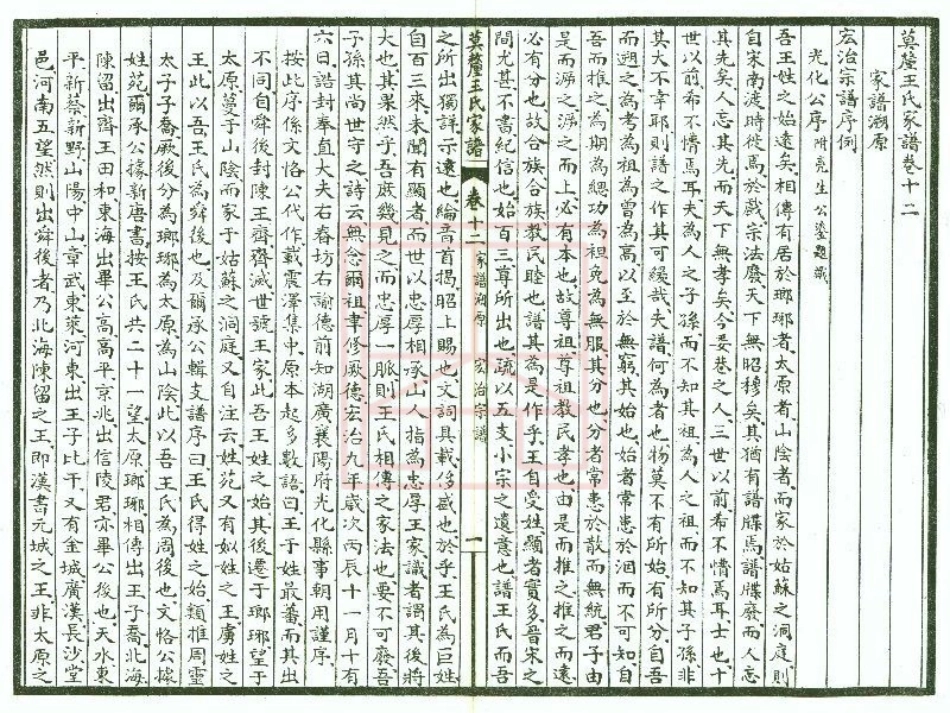 莫釐王氏家譜卷十二
家譜溯原
宏治宗譜序例
光化公序 附亮生公鎏題識
吾王姓之始遠矣相傳有居於瑯琊者太原者山陰者而家於姑蘇之洞庭則
自宋南渡時徙焉於戲宗法廢天下無昭穆矣其猶有譜牒焉譜牒廢而人忘
其先矣人忘其先而天下無孝矣今委巷之人三世以前希不懵焉耳士也十
世以前希不懵焉耳夫為人之子孫而不知其祖為人之祖而不知其子孫非
其大不幸耶則譜之作其可緩哉夫譜何為者也物莫不有所始有所分自吾
而遡之為考為祖為曾為高以至於無窮其始也始者常患於洇而不可知自
吾而推之為期為緦功為袒免為無服其分也分者常患於散而無統君子由
是而溯之溯之而上必有本也故尊祖尊祖教民孝也由是而推之推之而遠
必有分也故合族合族教民睦也譜其為是作乎王自受姓顯者實多晉宋之
間尤甚不書紀信也始百三尊所出也疏以五支小宗之遺意也譜王氏而吾
莫釐王氏家譜 卷十二 家譜溯原 宏治宗譜 一
之所出獨詳示遠也綸音首揭昭上賜也文詞具載侈盛也於乎王氏為巨姓
自百三來未聞有顯者而世以忠厚相承山人指為忠厚王家識者謂其後將
大也其果然乎吾庶幾見之而忠厚一脈則王氏相傳之家法也要不可廢吾
子孫其尚世守之詩云無念爾祖聿修厥德宏治九年歲次丙辰十一月十有
六日誥封奉直大夫右春坊右諭德前知湖廣襄陽府光化縣事朝用謹序
按此序係文恪公代作載震澤集中原本起多數語曰王于姓最蕃而其出
不同自舜後封陳王齊齊滅世號王家此吾王姓之始其後遷于瑯琊望于
太原蔓于山陰而家于姑蘇之洞庭又自注云姓苑又有姒姓之王虜姓之
王此以吾王氏為舜後也及爾承公輯支譜序曰王氏得姓之始類推周靈
太子子喬厥後分為瑯琊為太原為山陰此以吾王氏為周後也文恪公據
姓苑爾承公據新唐書按王氏共二十一望太原瑯琊相傳出王子喬北海
陳留出齊王田和東海出畢公高高平京兆出信陵君亦畢公後也天水東
平新蔡新野山陽中山章武東萊河東出王子比干又有金城廣漢長沙堂
邑河南五望然則出舜後者乃北海陳留之王即漢書元城之王非太原之